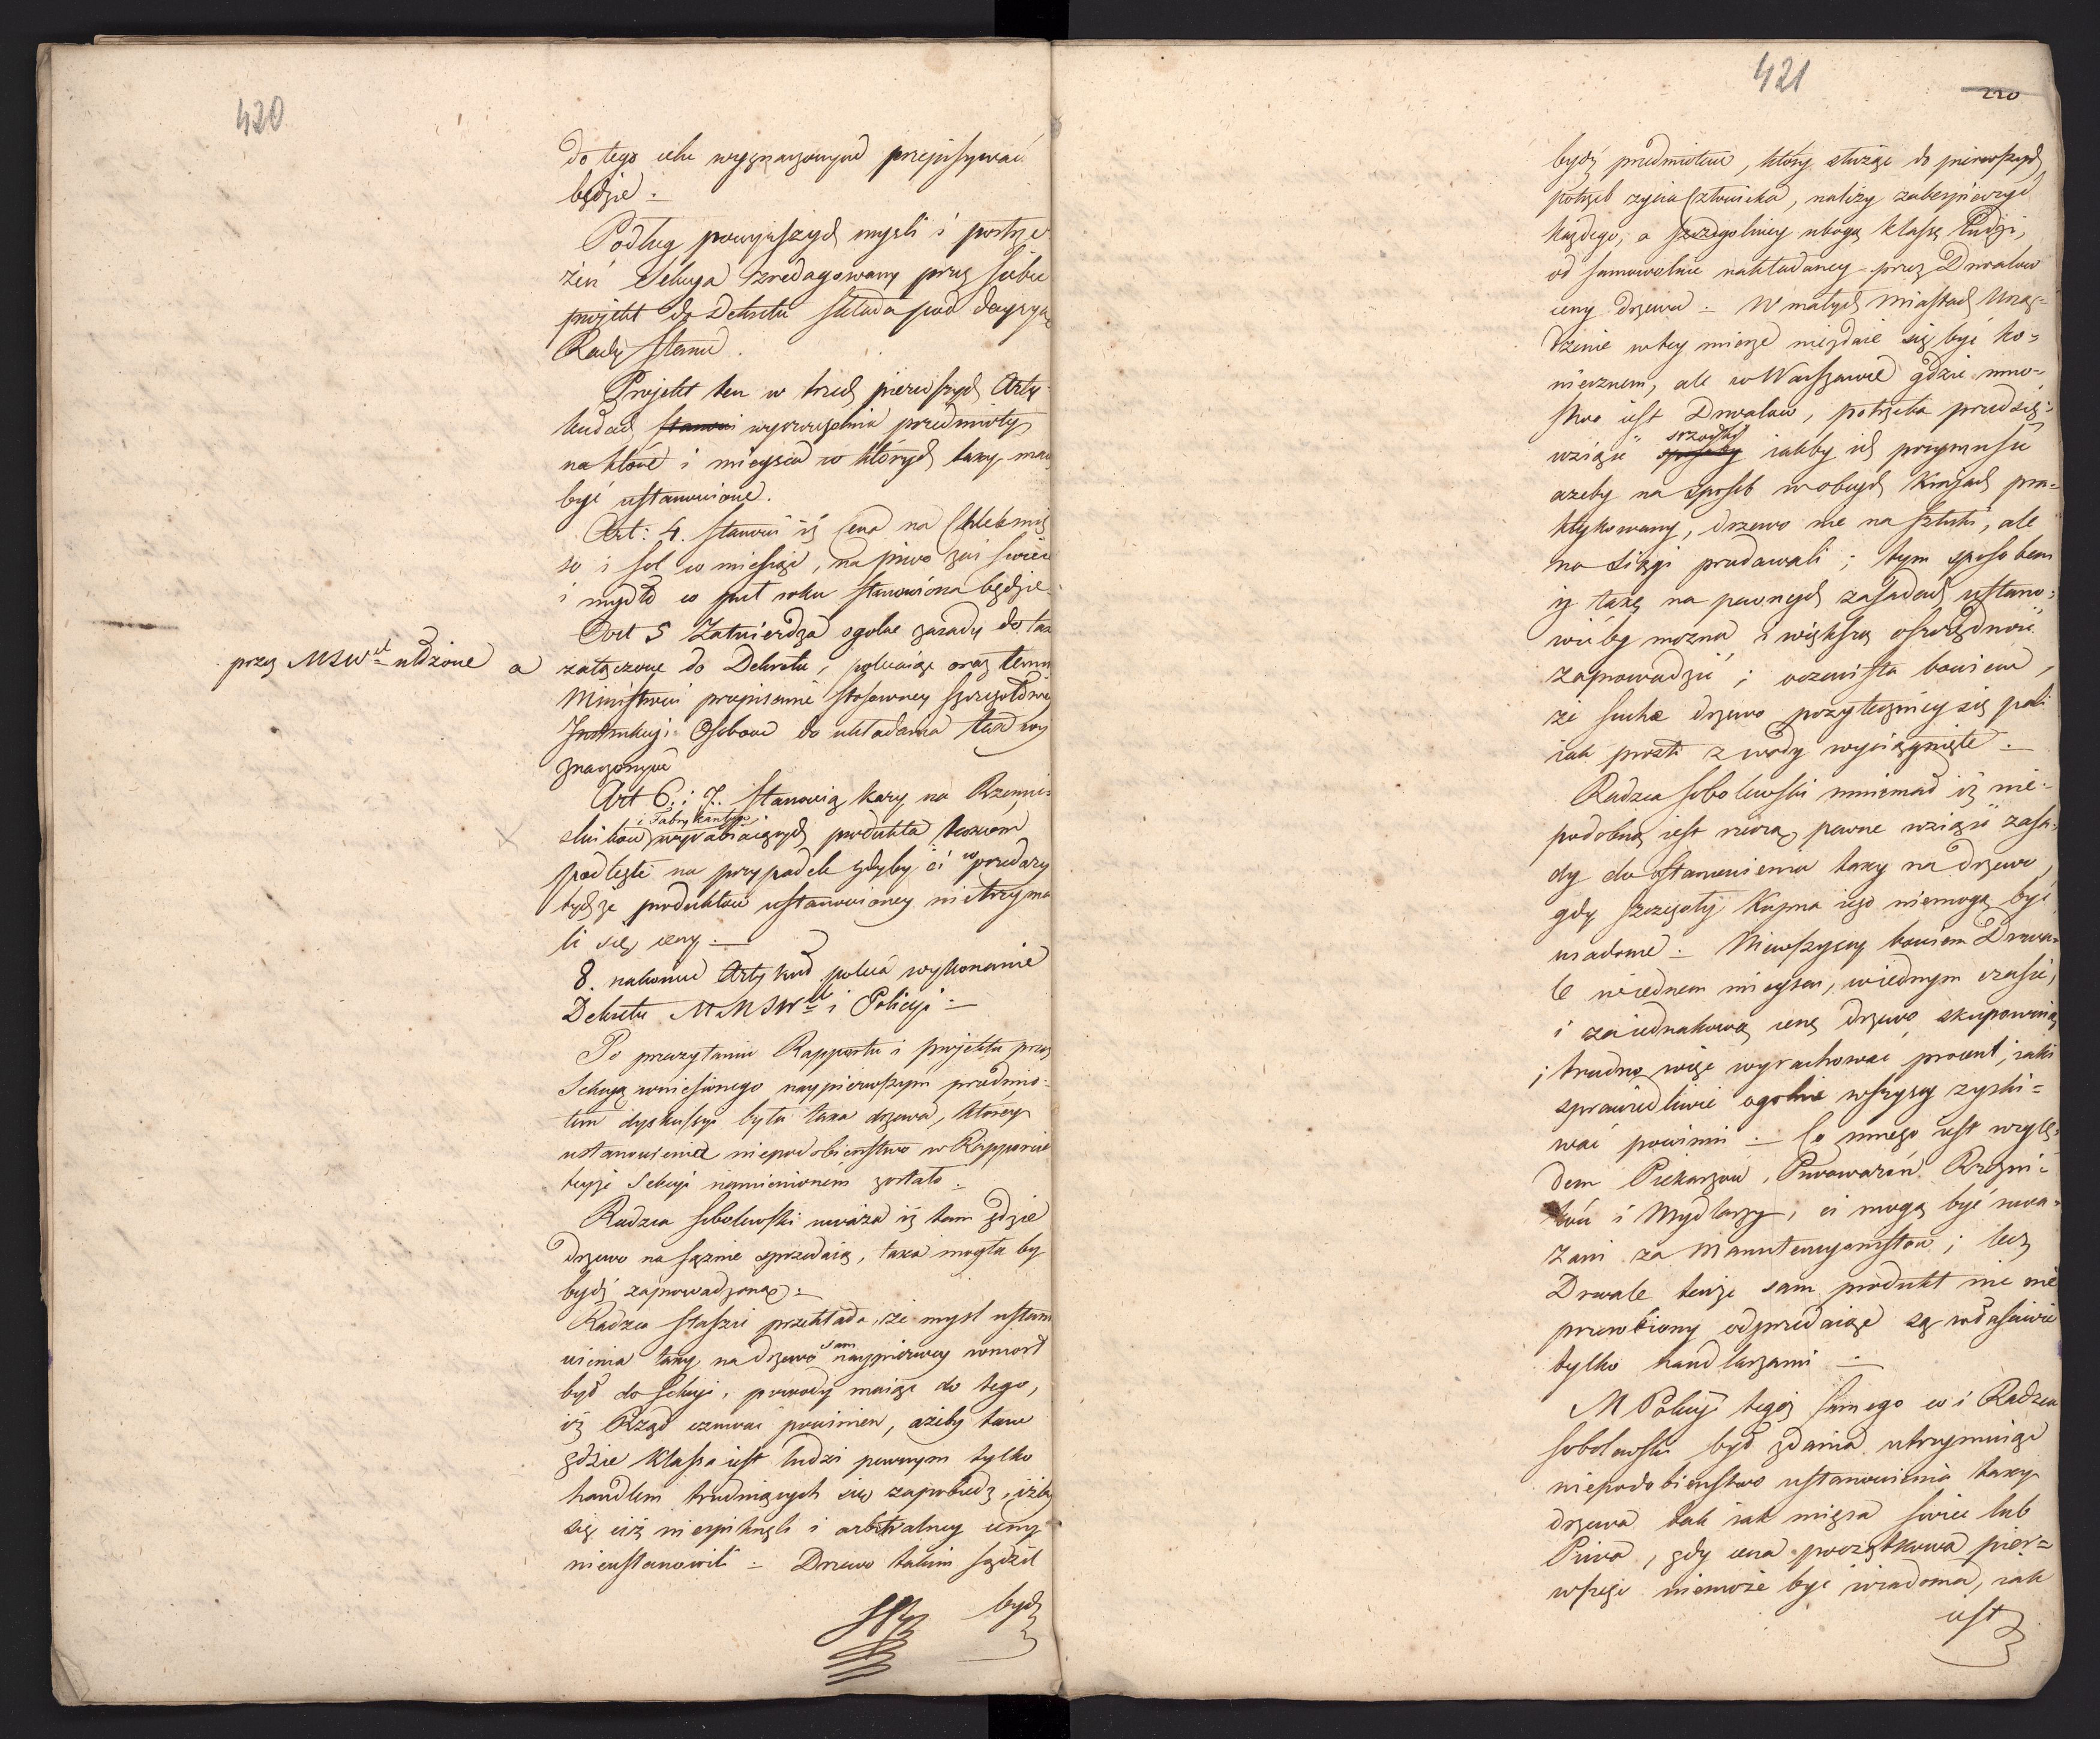 420
do tego celu wyznaczonych przepisywać
będzie .
Podług powyższych myśli i postrze
żeń Sekcya zredagowany przez siebie
projekt do Dekretu składa pod decyzyę
Rady Stanu .
Projekt ten w trzech pierwszych Arty-
kułach stanowi wyszczególnia przedmioty
na które i mieysca w których taxy maią
być ustanowione.
Art: 4. stanowi iż Cena na Chleb mię
so i sol co miesiąc, na piwo zaś swiece
i mydło co puł roku stanowiona będzie
Art 5 Zatwierdza ogolne zasady do tax
przez MSW ułożone a
załączone do Dekretu, polecaiąc oraz temu
Ministrowi przepisanie stosowney szczegółowey
Instrukcyi Osobom do układania tax wy
znaczonym
Art 6. i 7. stanowią kary na Rzemie-
i Fabrykantow
slnikow wyrabiaiących produkta taxom
podległe na przypadek gdyby ci w przedaży
tychże produktow ustanowioney nietrzyma
li się ceny .
8. nakoniec Artykuł poleca wykonanie
Dekretu MMSW i Policyi .
Po przeczytaniu Rapportu i projektu przez
Sekcyą wniesionego naypierwszym przedmio-
tem dyskussyi była taxa drzewa, którey
ustanowienia niepodobieństwo w Rapporcie
teyże Sekcyi namienionem zostało .
Radzca Sobolewski uważa iż tam gdzie
drzewo na sążnie sprzedaią, taxa mogła by
bydź zaprowadzona .
Radzca Staszic przekłada, że myśl ustano
wienia taxy na drzewo sam naypierwey wniosł
był do Sekcyi, powody maiąc do tego,
iż Rząd czuwać powinien, ażeby tam
gdzie klassa iest ludzi pewnym tylko
handlem trudniących się zapobiedz, iżby
się ciż niespiknęli i arbitralney ceny
nieustanowili . Drzewo takim sądził
bydź
421
220
bydź przedmiotem, który służąc do pierwszych
potrzeb zycia Człowieka, należy zabespieczyć
każdego, a szczegolniey ubogą klassę ludzi,
od samowolnie nakładaney przez Drwalow
ceny drzewa . W małych Miastach Urzą-
dzenie wtey mierze niezdaie się być ko-
niecznem, ale w Warszawie gdzie mno-
stwo iest Drwalow, potrzeba przedsię-
wziąść sposoby srzodki iakby ich przymusić
azeby na sposob w obcych kraiach pra-
ktykowany, drzewo nie na sztuki, ale
na siągi przedawali ; tym sposobem
iż taxę na pewnych zasadach ustano-
wić by można, i większą oszczędność
zaprowadzić ; oczewista bowiem,
że suche drzewo pozyteczniey się pali
iak prosto z wody wyciągnięte .
Radzca Sobolewski mniemał iż nie-
podobną iest rzeczą, pewne wziąść zasa-
dy do stanowienia taxy na drzewo,
gdy szczegoły kupna iego niemogą być
wiadome . Niewszyscy bowiem Drwa-
le wiednem mieyscu, wiednym czasie,
i zaiednakową cenę drzewo skupowuią
; trudno więc wyrachować procent, iaki
sprawiedliwie ogolnie wszyscy zyski-
wać powinni . Co innego iest wzglę-
dem Piekarzow, Piwowarów Rzezni-
ków i Mydlarzy, ci mogą być uwa-
żani za Manutencyonistow ; lecz
Drwale tenże sam produkt nie nie
przerobiony odprzedaiąc są właściwie
tylko handlarzami .
M Policyi tegoż samego co i Radzca
Sobolewski był zdania utrzymuiąc
niepodobieństwo ustanowienia taxy
drzewa tak iak mięsa świec lub
Piwa, gdy cena początkowa pier-
wszego niemoże być wiadomą, iak
iest